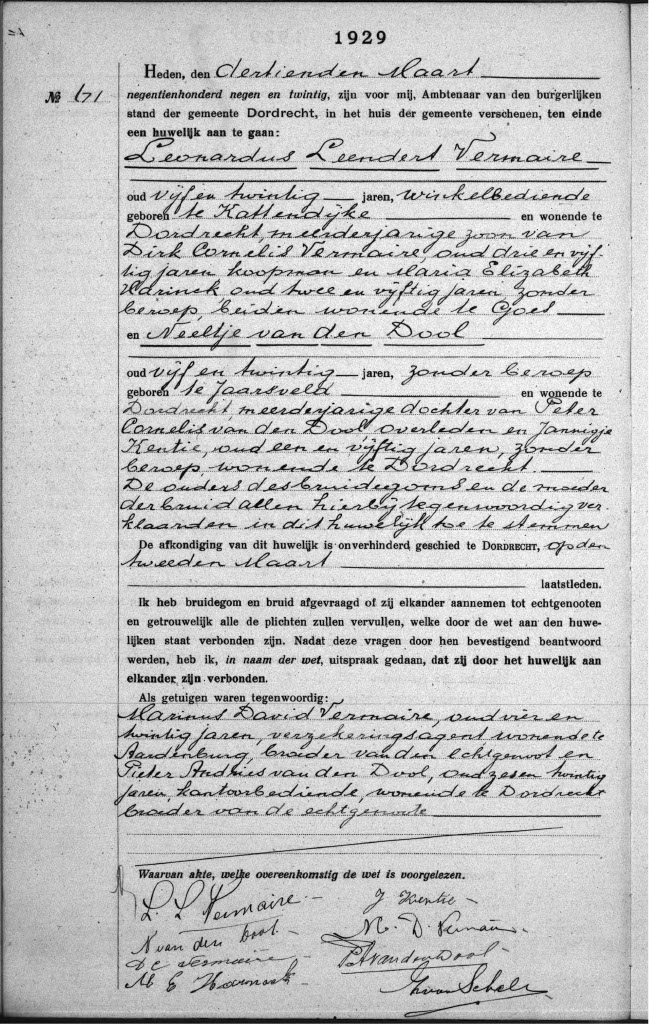 1929
Heden, den dertienden Maart
№ 71
negentienhonderd negen en twintig, zijn voor mij, Ambtenaar van den burgerlijken
stand der gemeente Dordrecht, in het huis der gemeente verschenen, ten einde
een huwelijk aan te gaan:
Leonardus Leendert Vermaire
oud vijf en twintig jaren, winkelbediende
geboren te Kattendijke en wonende te
Dordrecht, meerderjarige zoon van
Dirk Cornelis Vermaire, oud drie en vijf-
tig jaren koopman en Maria Elizabeth
Harinck oud twee en vijftig jaren, zonder
beroep, beiden wonende te Goes
en Neeltje van den Dool
oud vijf en twintig jaren, zonder beroep
geboren te Jaarsveld en wonende te
Dordrecht meerderjarige dochter van Peter
Cornelis van den Dool overleden en Jannigje
Kentie, oud een en vijftig jaren, zonder
beroep, wonende te Dordrecht.
De ouders des bruidegoms en de moeder
der bruid allen hierbij tegenwoordig ver-
klaarden in dit huwelijk toe te stemmen
De afkondiging van dit huwelijk is onverhinderd geschied te Dordrecht, op den
tweeden Maart
laatstleden.
Ik heb bruidegom en bruid afgevraagd of zij elkander aannemen tot echtgenooten
en getrouwelijk alle de plichten zullen vervullen, welke door de wet aan den huwe-
lijken staat verbonden zijn. Nadat deze vragen door hen bevestigend beantwoord
werden, heb ik, in naam der wet, uitspraak gedaan, dat zij door het huwelijk aan
elkander zijn verbonden.
Als getuigen waren tegenwoordig:
Marinus David Vermaire, oud vier en
twintig jaren, verzekeringsagent wonende te
Aardenburg, broeder van den echtgenoot en
Pieter Andries van den Dool, oud zes en twintig
jaren, kantoorbediende, wonende te Dordrecht
broeder van de echtgenoote
Waarvan akte, welke overeenkomstig de wet is voorgelezen.
L. L. Vermaire
J Kentie
N van den Dool
M. D. Vermaire
D C Vermaire
P A van den Dool
M E Harinck